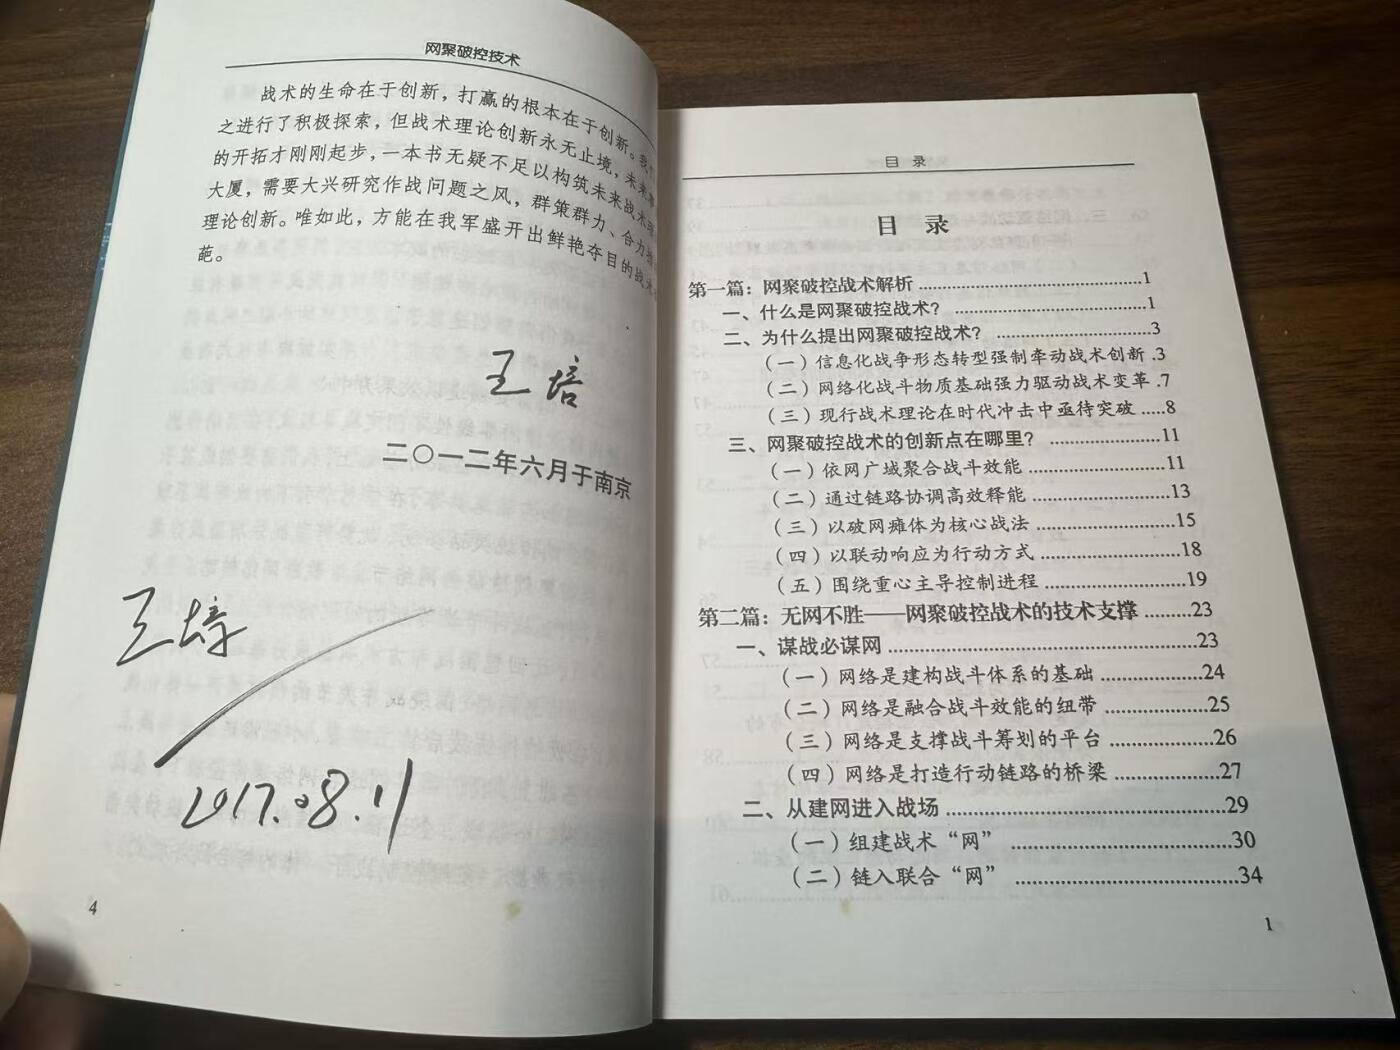 网聚破控技术
战术的生命在于创新，打赢的根本在于创新。我们
之进行了积极探索，但战术理论创新永无止境，未来
的开拓才刚刚起步，一本书无疑不足以构筑未来战术理
大厦，需要大兴研究作战问题之风，群策群力、合力
理论创新。唯如此，方能在我军盛开出鲜艳夺目的战术
葩。
王培
二〇一二年六月于南京
王培
2017.08.11
4
目 录
目 录
第一篇：网聚破控战术解析 ........................................1
一、什么是网聚破控战术？ ................................1
二、为什么提出网聚破控战术？ ..........................3
（一）信息化战争形态转型强制牵动战术创新 .3
（二）网络化战斗物质基础强力驱动战术变革 .7
（三）现行战术理论在时代冲击中亟待突破 .....8
三、网聚破控战术的创新点在哪里？ ..................11
（一）依网广域聚合战斗效能 .......................11
（二）通过链路协调高效释能 .......................13
（三）以破网瘫体为核心战法 .......................15
（四）以联动响应为行动方式 .......................18
（五）围绕重心主导控制进程 .......................19
第二篇：无网不胜——网聚破控战术的技术支撑 .........23
一、谋战必谋网 .................................................23
（一）网络是建构战斗体系的基础 ................24
（二）网络是融合战斗效能的纽带 ................25
（三）网络是支撑战斗筹划的平台 ................26
（四）网络是打造行动链路的桥梁 ................27
二、从建网进入战场 ..........................................29
（一）组建战术“网” ................................30
（二）链入联合“网” ................................34
1